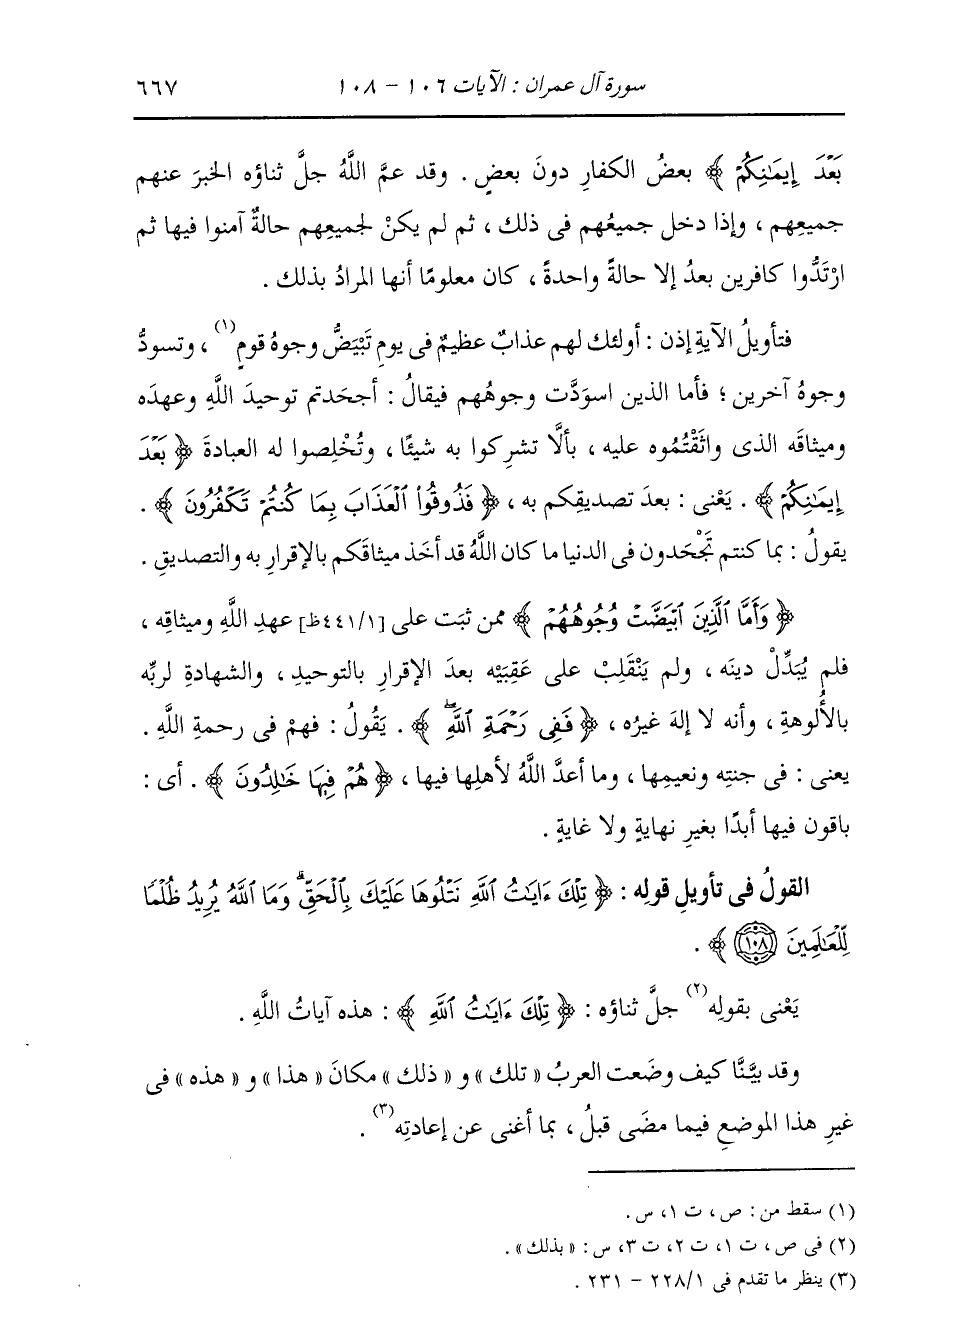 سورة آل عمران : الآيات ١٠٦ - ١٠٨ ٦٦٧
بَعْدَ إِيمَٰنِكُمْ ﴾ بعضُ الكفارِ دونَ بعضٍ . وقد عمَّ اللَّهُ جلَّ ثناؤه الخبرَ عنهم
جميعِهم ، وإذا دخل جميعُهم فى ذلك ، ثم لم يكنْ لجميعِهم حالةٌ آمنوا فيها ثم
ارْتَدُّوا كافرين بعدُ إلا حالةً واحدةً ، كان معلومًا أنها المرادُ بذلك .
فتأويلُ الآيةِ إذن : أولئك لهم عذابٌ عظيمٌ فى يومِ تَبْيَضُّ وجوهُ قومٍ(١) ، وتسودُّ
وجوهُ آخرين ؛ فأما الذين اسوَدَّت وجوهُهم فيقالُ : أجحَدتم توحيدَ اللَّهِ وعهدَه
وميثاقَه الذى واثَقْتُموه عليه ، بألَّا تشرِكوا به شيئًا ، وتُخْلِصوا له العبادةَ ﴿ بَعْدَ
إِيمَٰنِكُمْ ﴾ . يَعْنى : بعدَ تصديقِكم به ، ﴿ فَذُوقُوا۟ ٱلْعَذَابَ بِمَا كُنتُمْ تَكْفُرُونَ ﴾ .
يقولُ : بما كنتم تَجْحَدون فى الدنيا ما كان اللَّهُ قد أخَذ ميثاقَكم بالإقرارِ به والتصديقِ .
﴿ وَأَمَّا ٱلَّذِينَ ٱبْيَضَّتْ وُجُوهُهُمْ ﴾ ممن ثبَت على [٤٤١/١ظ] عهدِ اللَّهِ وميثاقِه ،
فلم يُبَدِّلْ دينَه ، ولم يَنْقَلِبْ على عَقِبَيْه بعدَ الإقرارِ بالتوحيدِ ، والشهادةِ لربِّه
بالأُلوهةِ ، وأنه لا إلهَ غيرُه ، ﴿ فَفِى رَحْمَةِ ٱللَّهِۖ ﴾ . يَقُولُ : فهمْ فى رحمةِ اللَّهِ .
يعنى : فى جنتِه ونعيمِها ، وما أعدَّ اللَّهُ لأهلِها فيها ، ﴿ هُمْ فِيهَا خَٰلِدُونَ ﴾ . أى :
باقون فيها أبدًا بغيرِ نهايةٍ ولا غايةٍ .
القولُ فى تأويلِ قولِه : ﴿ تِلْكَ ءَايَٰتُ ٱللَّهِ نَتْلُوهَا عَلَيْكَ بِٱلْحَقِّۗ وَمَا ٱللَّهُ يُرِيدُ ظُلْمًا
لِّلْعَٰلَمِينَ ١٠٨ ﴾ .
يَعْنى بقولِه(٢) جلَّ ثناؤه : ﴿ تِلْكَ ءَايَٰتُ ٱللَّهِ ﴾ : هذه آياتُ اللَّهِ .
وقد بيَّنَّا كيف وضَعت العربُ « تلك » و « ذلك » مكانَ « هذا » و « هذه » فى
غيرِ هذا الموضعِ فيما مضَى قبلُ ، بما أغنى عن إعادتِه(٣) .
(١) سقط من : ص ، ت ١، س .
(٢) فى ص ، ت ١، ت ٢، ت ٣، س : « بذلك » .
(٣) ينظر ما تقدم فى ٢٢٨/١ - ٢٣١ .